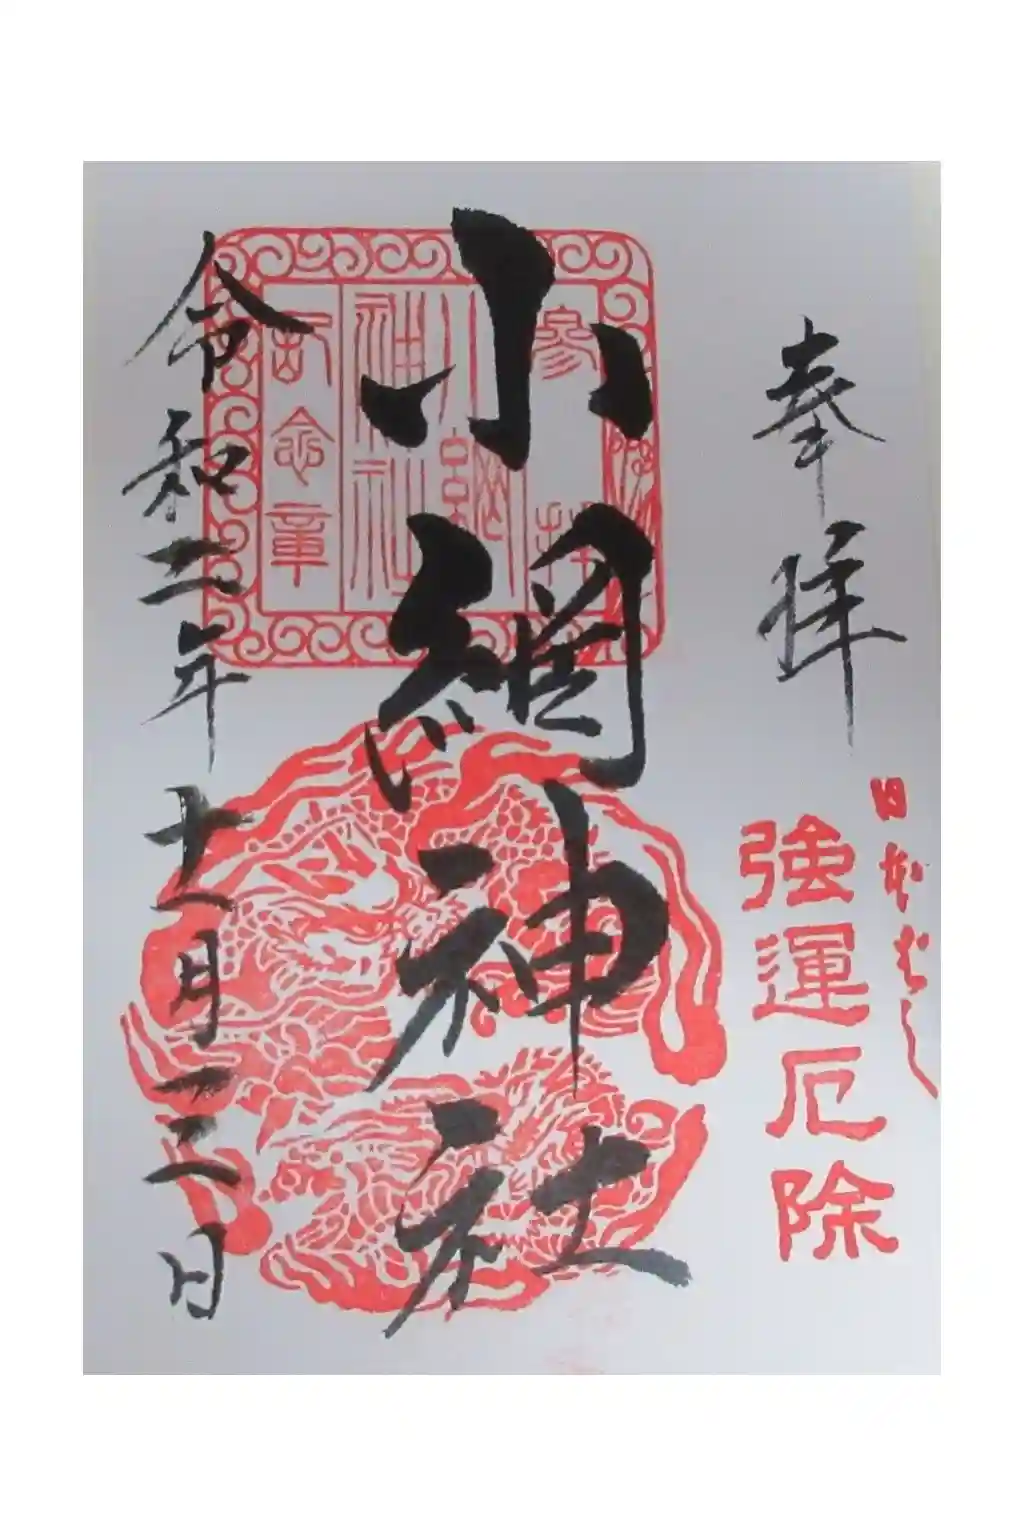 奉拝
日本ばし
強運厄除
小網神社
参拝
小網
神社
記念章
令和二年十一月一二日